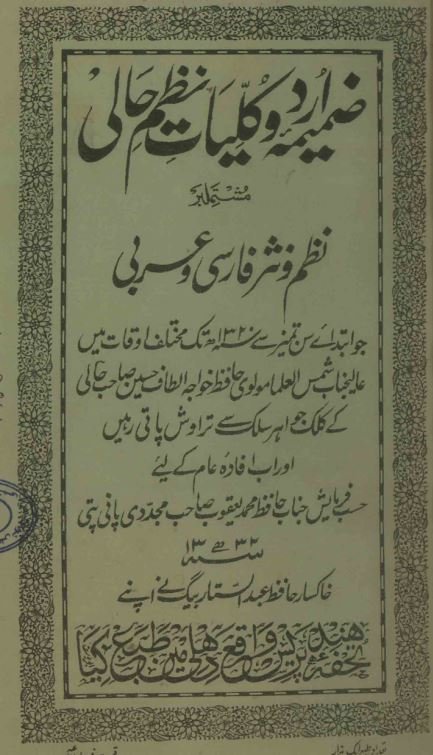 ضمیمۂ اردو کلیاتِ نظمِ حالی
مشتملبر
نظم و نثر فارسی و عربی
جو ابتداے سن تمیز سے ۱۳۲۰ھ تک مختلف اوقات میں
عالیجناب شمس العلما مولوی حافظ خواجہ الطاف حسین صاحب حالی
کے کلک جواہر سلک سے تراوش پاتی رہیں
اور اب افادۂ عام کے لیئے
حسب فرمایش جناب حافظ محمد یعقوب صاحب مجددی پانی پتی
سنہ ۱۳۳۲ھ
خاکسار حافظ عبد الستار بیگ نے اپنے
تحفۂ ہند پریس واقع دھلی میں طبع کیا